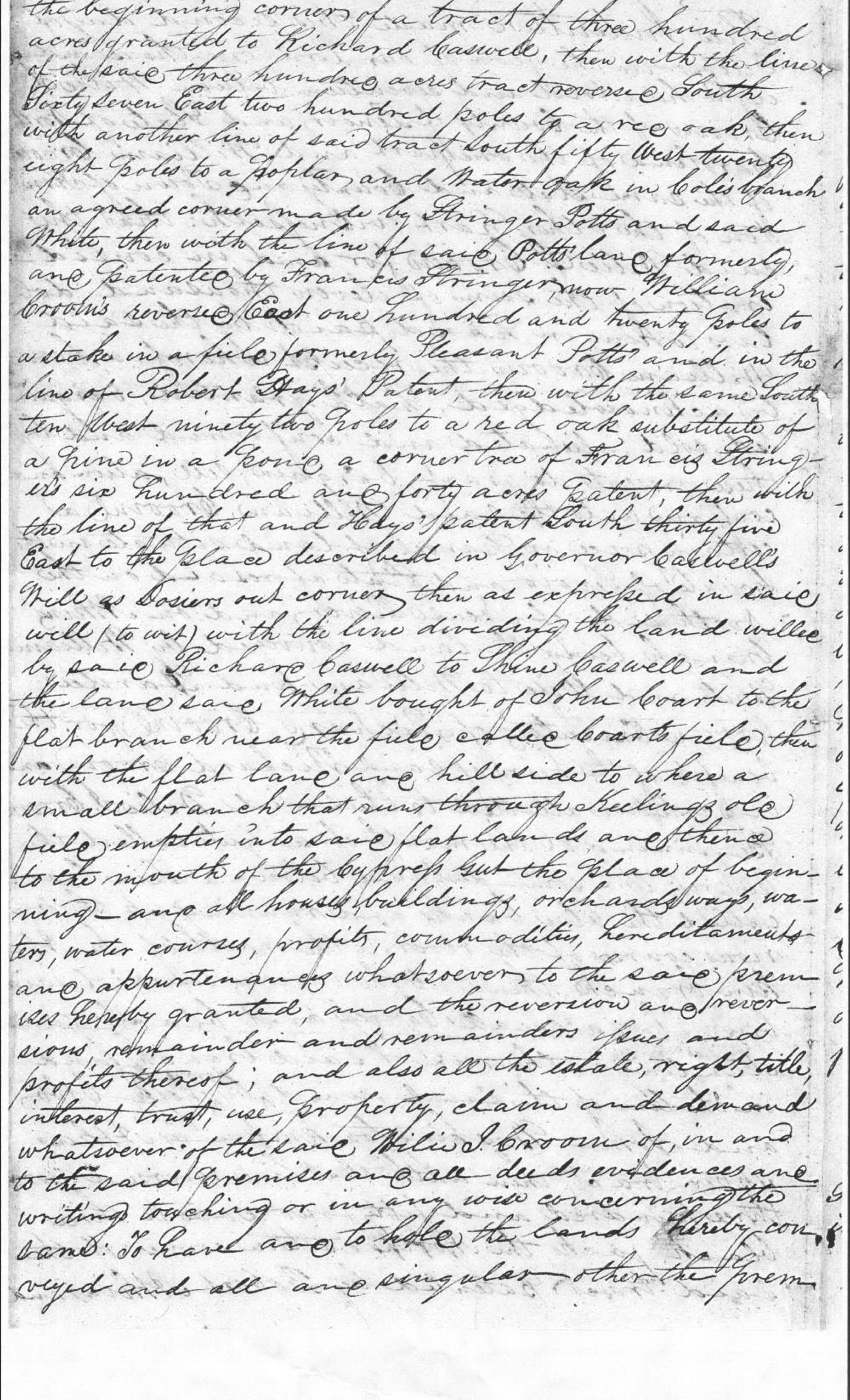 the beginning corner of a tract of three hundred
acres granted to Richard Caswell, then with the line
of the said three hundred acres tract reversed South
Sixty seven East two hundred poles to a red oak, then
with another line of said tract South fifty West twenty
eight poles to a poplar and Water oak in Cole's branch
an agreed corner made by Stringer Potts and said
White, then with the line of said Potts' land formerly,
and patented by Francis Stringer, now William
Croom's reversed East one hundred and twenty poles to
a stake in a field formerly Pleasant Potts' and in the
line of Robert Hays' Patent, then with the same South
ten West ninety two poles to a red oak substitute of
a pine in a pond a corner tree of Francis String-
er's six hundred and forty acres patent, then with
the line of that and Hays' patent South thirty five
East to the place described in Governor Caswell's
Will as Dosiers out corner, then as expressed in said
will (to wit) with the line dividing the land willed
by said Richard Caswell to Shine Caswell and
the land said White bought of John Coart to the
flat branch near the field called Coarts field, then
with the flat land and hill side to where a
small branch that runs through Keelings old
field empties into said flat lands and thence
to the mouth of the Cypress Gut the place of begin-
ning - and all houses, buildings, orchards, ways, wa-
ters, water courses, profits, commodities, hereditaments
and appurtenances whatsoever to the said prem-
ises hereby granted, and the reversion and rever-
sions, remainder and remainders issues and
profits thereof; and also all the estate, right, title,
interest, trust, use, property, claim and demand
whatsoever of the said Wilie J. Croom of, in and
to the said premises and all deeds evidences and
writings touching or in any wise concerning the
same: To have and to hold the lands hereby con-
veyed and all and singular other the prem-